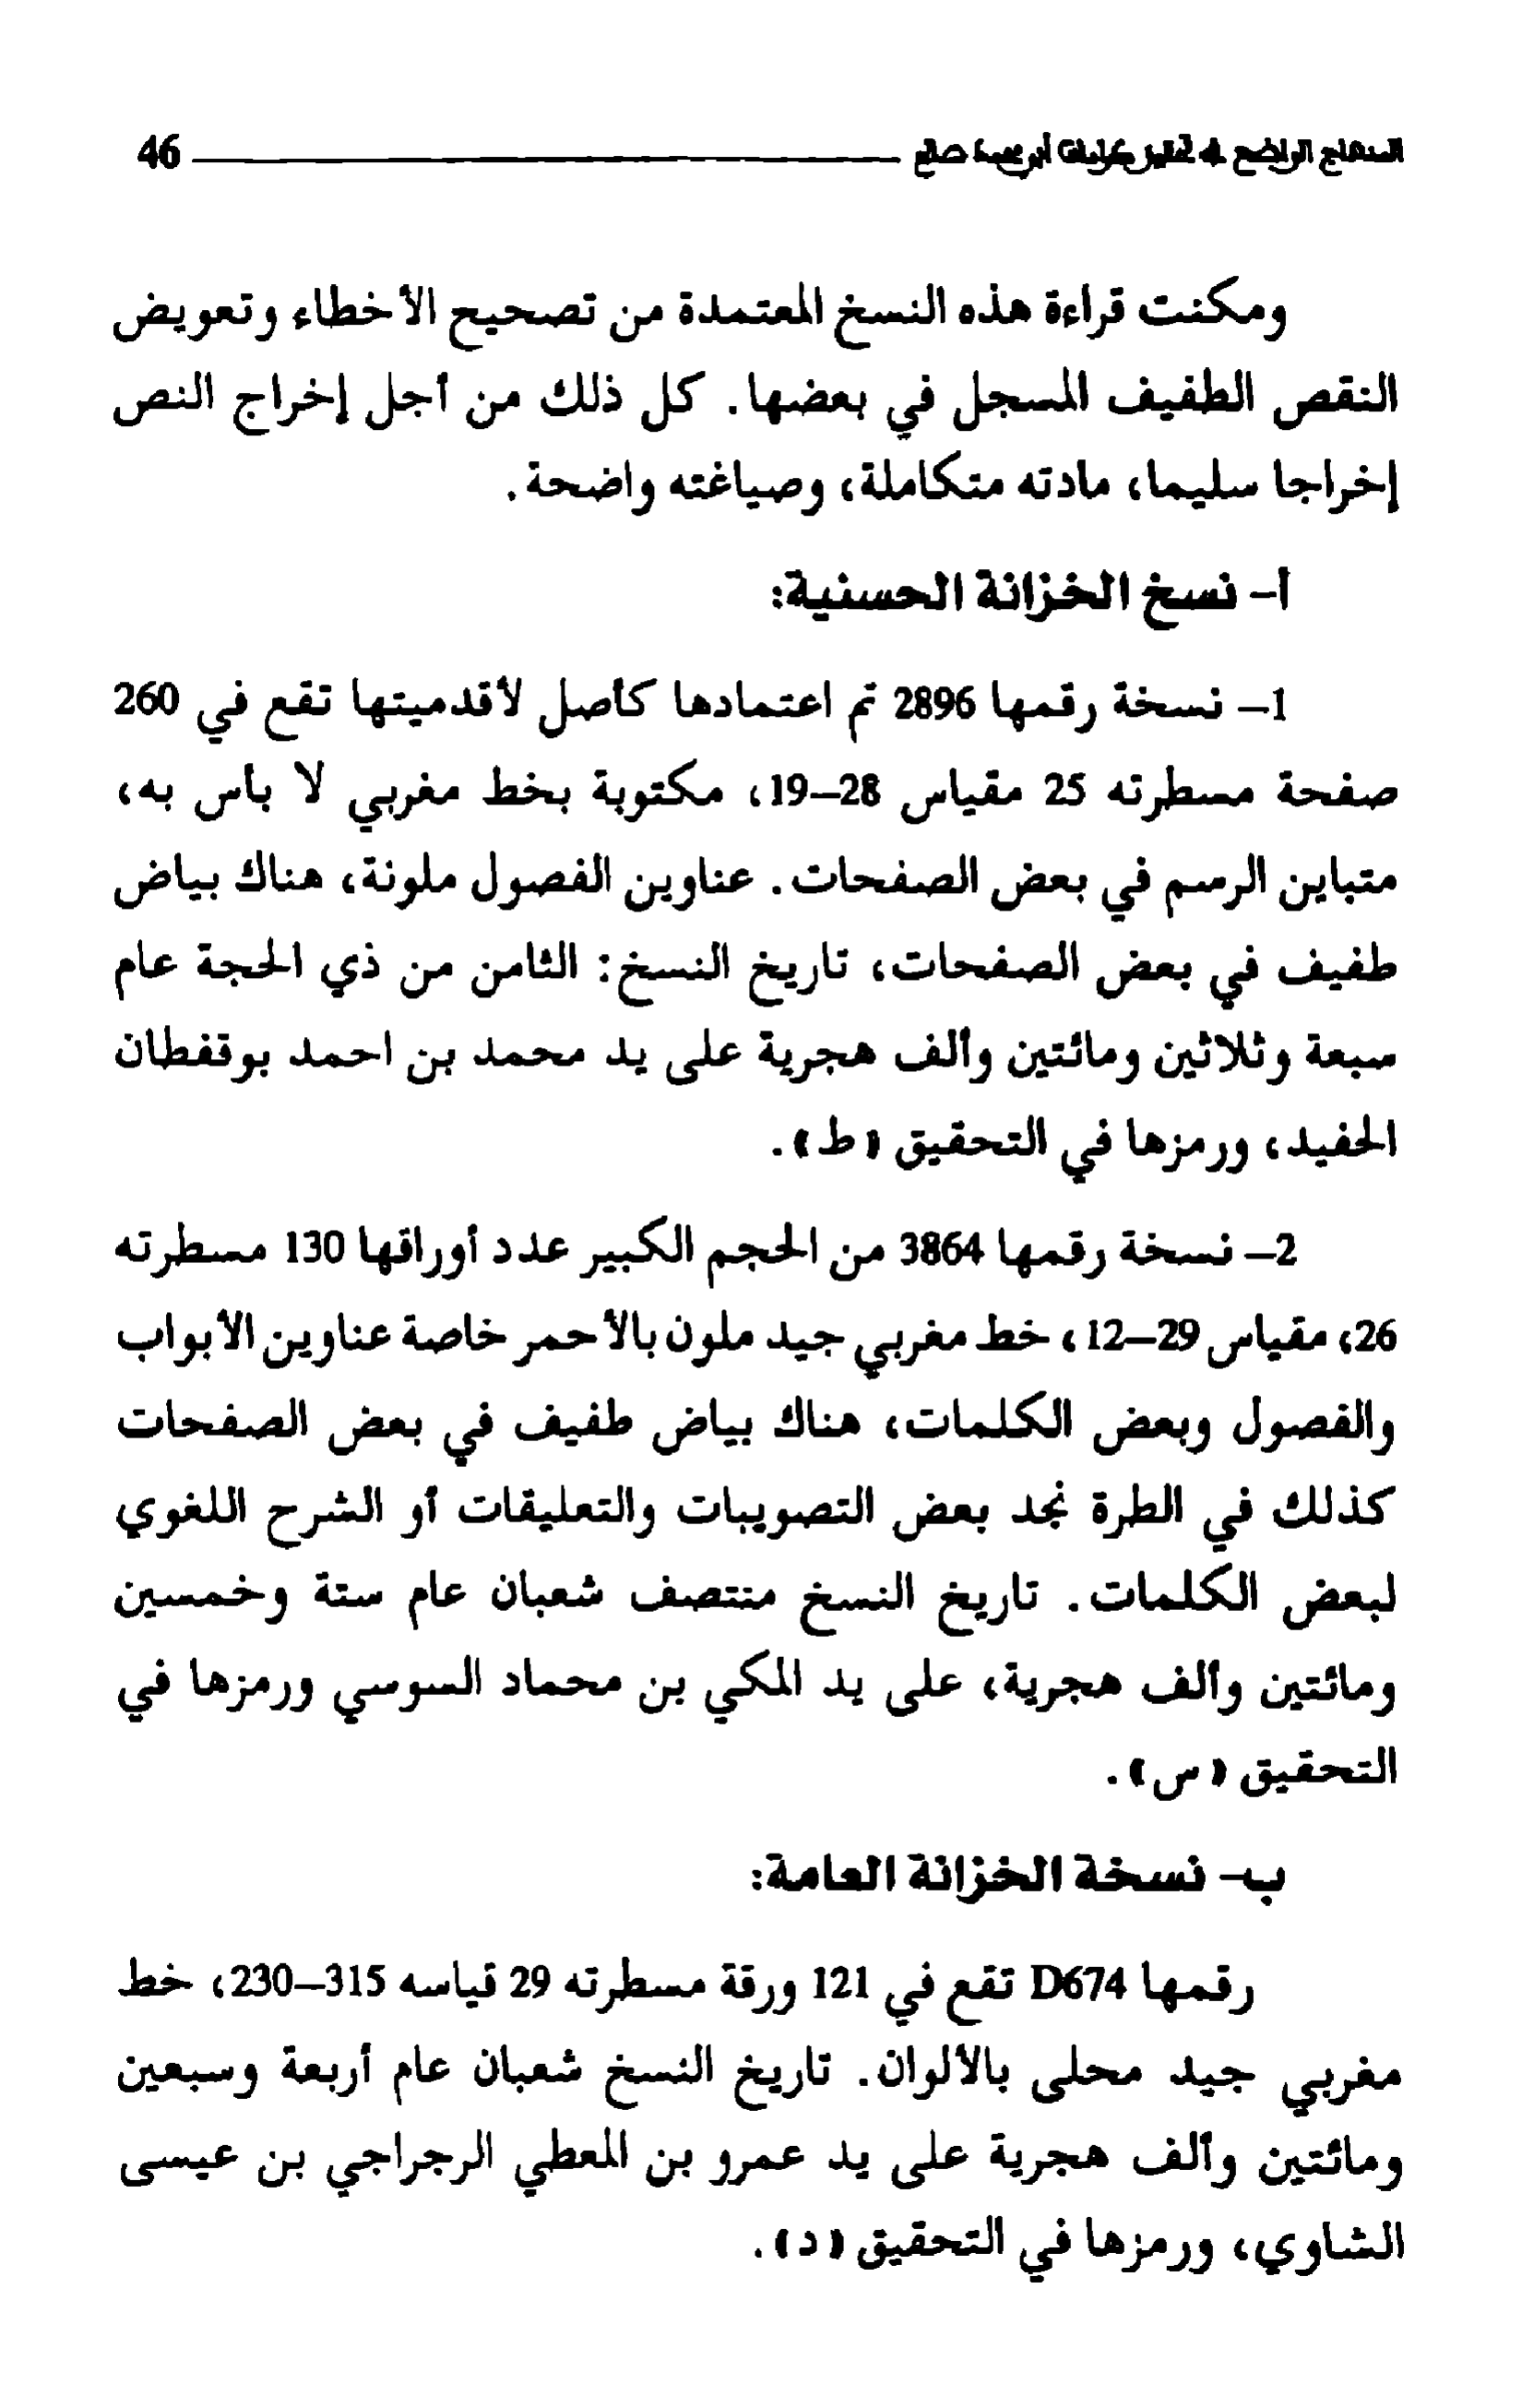 المنهاج الواضح في تحقيق كرامات أبي محمد صالح 46
ومكنت قراءة هذه النسخ المعتمدة من تصحيح الأخطاء وتعويض
النقص الطفيف المسجل في بعضها. كل ذلك من أجل إخراج النص
إخراجا سليما، مادته متكاملة، وصياغته واضحة.
أ- نسخ الخزانة الحسنية:
1- نسخة رقمها 2896 تم اعتمادها كأصل لأقدميتها تقع في 260
صفحة مسطرته 25 مقياس 28-19، مكتوبة بخط مغربي لا بأس به،
متباين الرسم في بعض الصفحات. عناوين الفصول ملونة، هناك بياض
طفيف في بعض الصفحات، تاريخ النسخ: الثامن من ذي الحجة عام
سبعة وثلاثين ومائتين وألف هجرية على يد محمد بن احمد بوقفطان
الحفيد، ورمزها في التحقيق «ط».
2- نسخة رقمها 3864 من الحجم الكبير عدد أوراقها 130 مسطرته
26، مقياس 29-12، خط مغربي جيد ملون بالأحمر خاصة عناوين الأبواب
والفصول وبعض الكلمات، هناك بياض طفيف في بعض الصفحات
كذلك في الطرة نجد بعض التصويبات والتعليقات أو الشرح اللغوي
لبعض الكلمات. تاريخ النسخ منتصف شعبان عام ستة وخمسين
ومائتين وألف هجرية، على يد المكي بن محماد السوسي ورمزها في
التحقيق «س».
ب- نسخة الخزانة العامة:
رقمها D674 تقع في 121 ورقة مسطرته 29 قياسه 315-230، خط
مغربي جيد محلى بالألوان. تاريخ النسخ شعبان عام أربعة وسبعين
ومائتين وألف هجرية على يد عمرو بن المعطي الرجراجي بن عيسى
الشاوي، ورمزها في التحقيق «د».